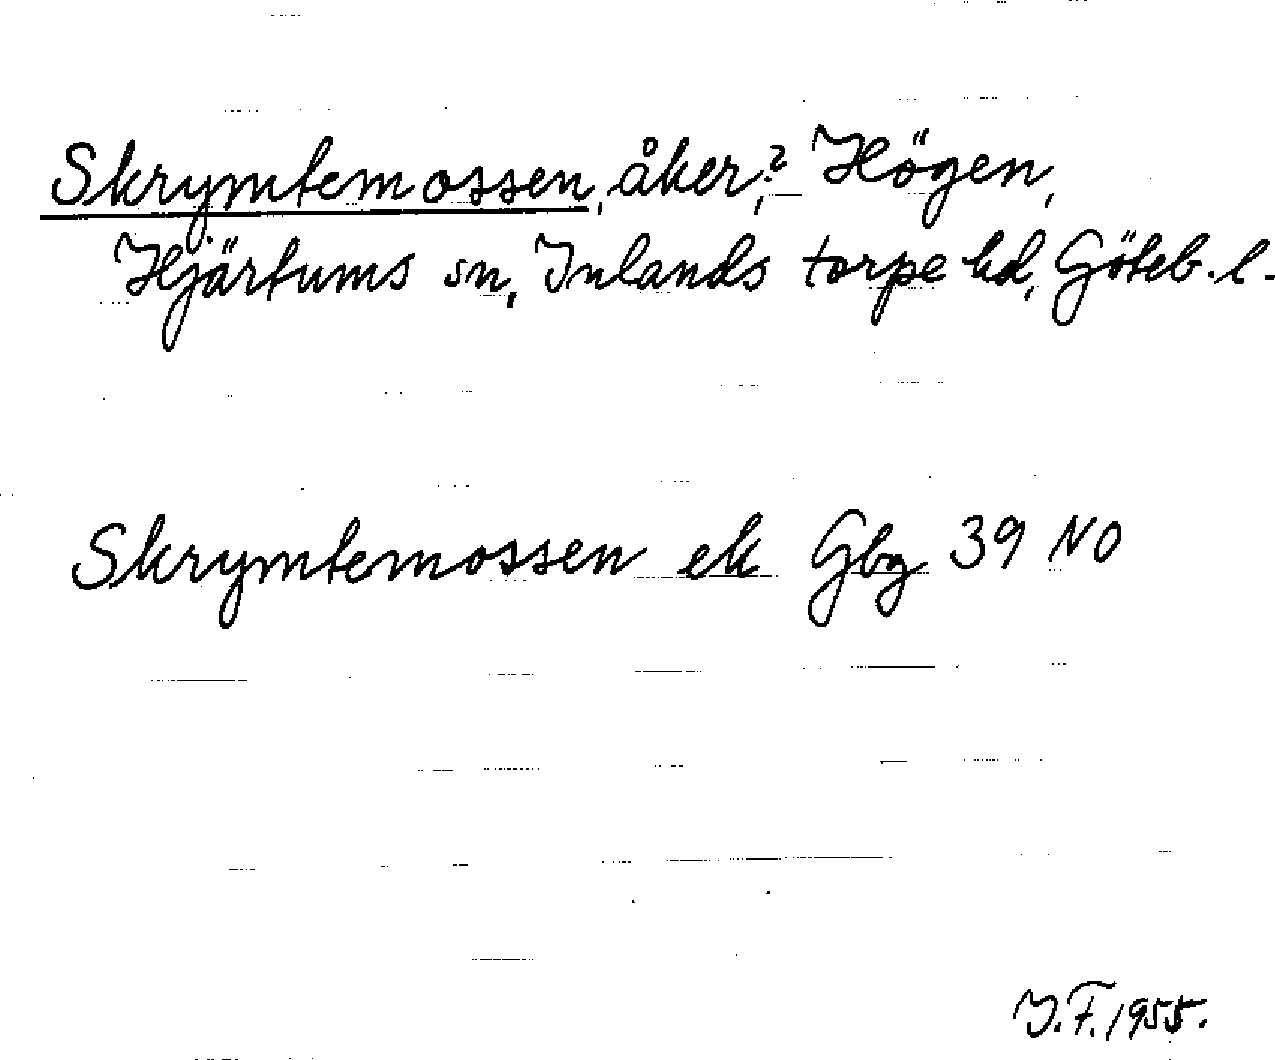 Skrymtemossen, åker,? Högen,
Hjärtums sn, Inlands torpe hd, Göteb. l.
Skrymtemossen ek Gbg 39 NO
I.F. 1955.